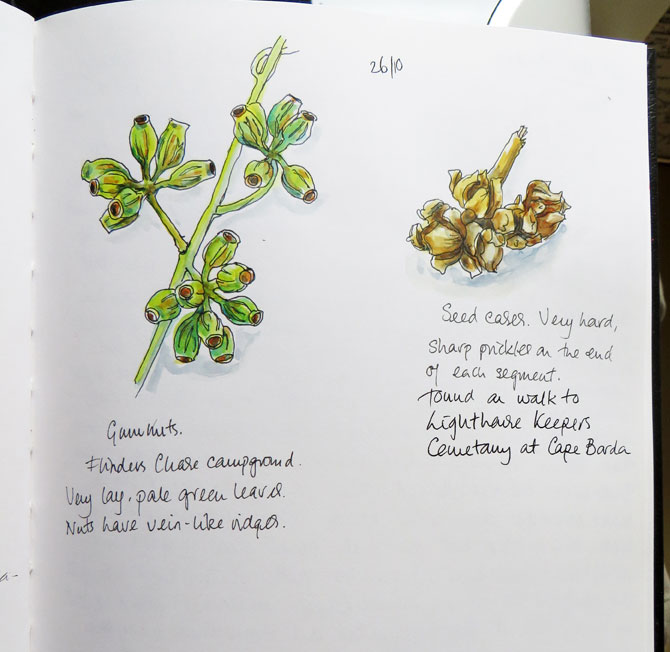 26/10
Gumnuts.
Flinders Chase campground.
Very lay, pale green leaves.
Nuts have vein-like ridges.
Seed cases. Very hard,
sharp prickles on the end
of each segment.
Found on walk to
Lighthouse Keepers
Cemetary at Cape Borda
a-